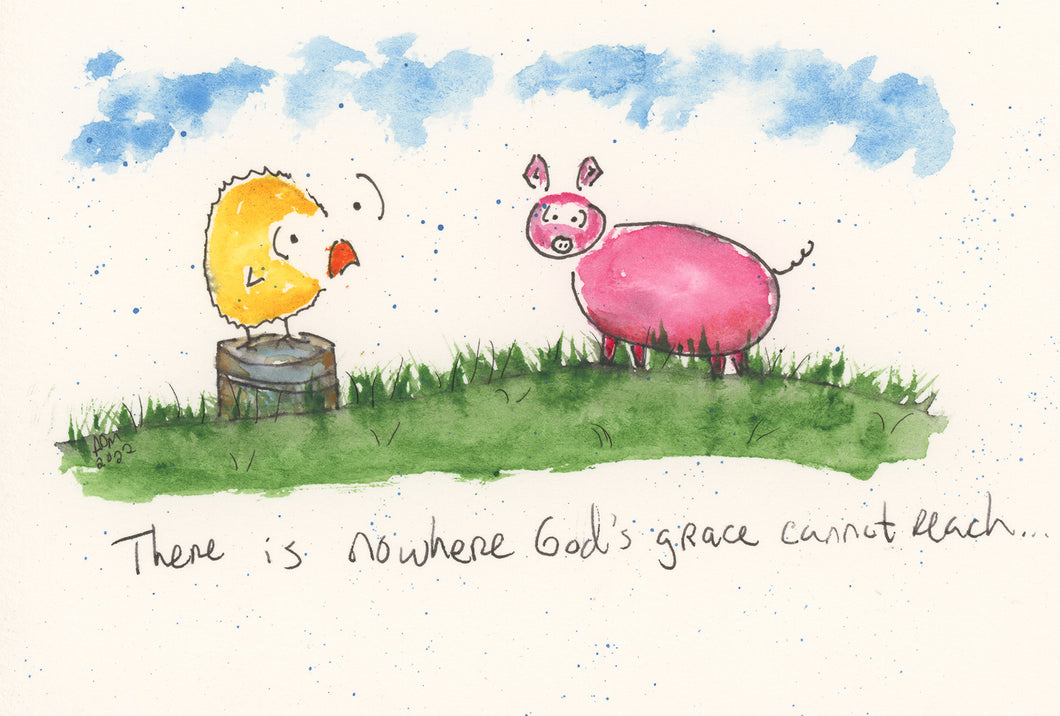 ADM
2022
There is nowhere God's grace cannot reach...